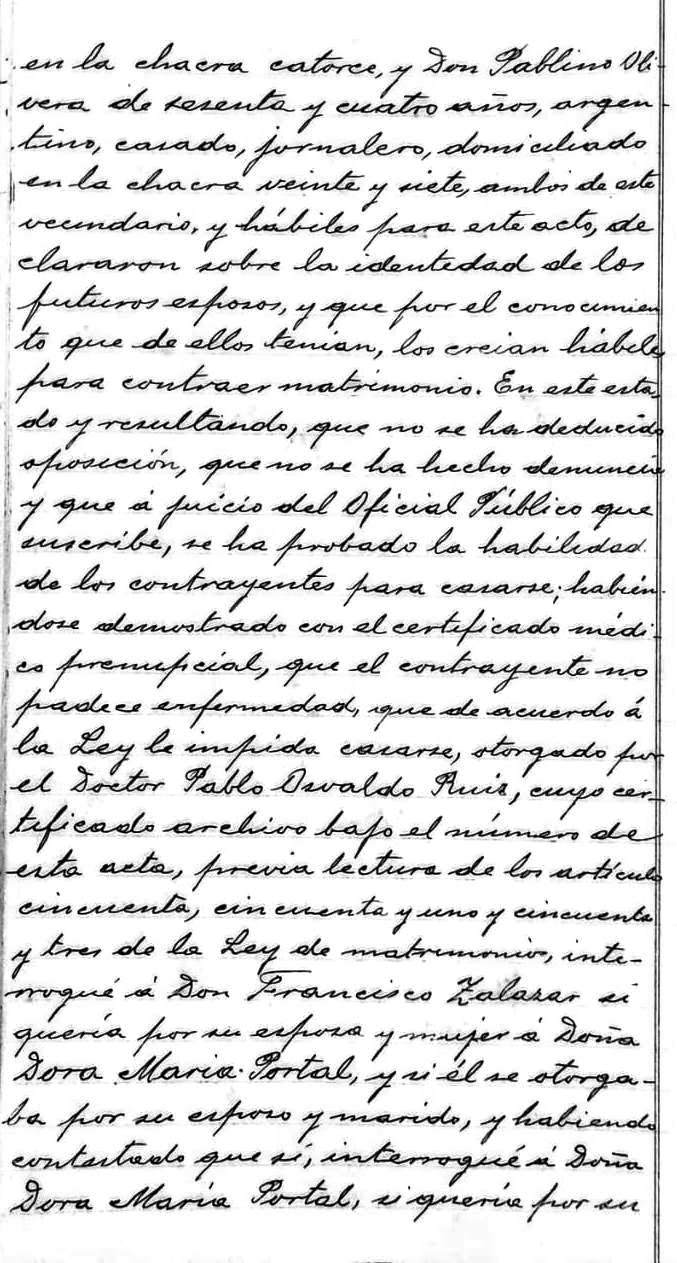 en la chacra catorce, y Don Pablino Oli-
vera de sesenta y cuatro años, argen-
tino, casado, jornalero, domiciliado
en la chacra veinte y siete, ambos de este
vecindario, y hábiles para este acto, de
clararon sobre la identidad de los
futuros esposos, y que por el conocimien
to que de ellos tenían, los creían hábiles
para contraer matrimonio. En este esta-
do y resultando, que no se ha deducido
oposición, que no se ha hecho denuncia
y que á juicio del Oficial Público que
suscribe, se ha probado la habilidad
de los contrayentes para casarse; habién-
dose demostrado con el certificado médi-
co prenupcial, que el contrayente no
padece enfermedad, que de acuerdo á
la Ley le impida casarse, otorgado por
el Doctor Pablo Osvaldo Ruiz, cuyo cer-
tificado archivo bajo el número de
esta acta, previa lectura de los artículos
cincuenta, cincuenta y uno y cincuenta
y tres de la Ley de matrimonio, inte-
rrogué á Don Francisco Zalazar si
quería por su esposa y mujer á Doña
Dora Maria Portal, y si él se otorga-
ba por su esposo y marido, y habiendo
contestado que sí, interrogué á Doña
Dora María Portal, si quería por su